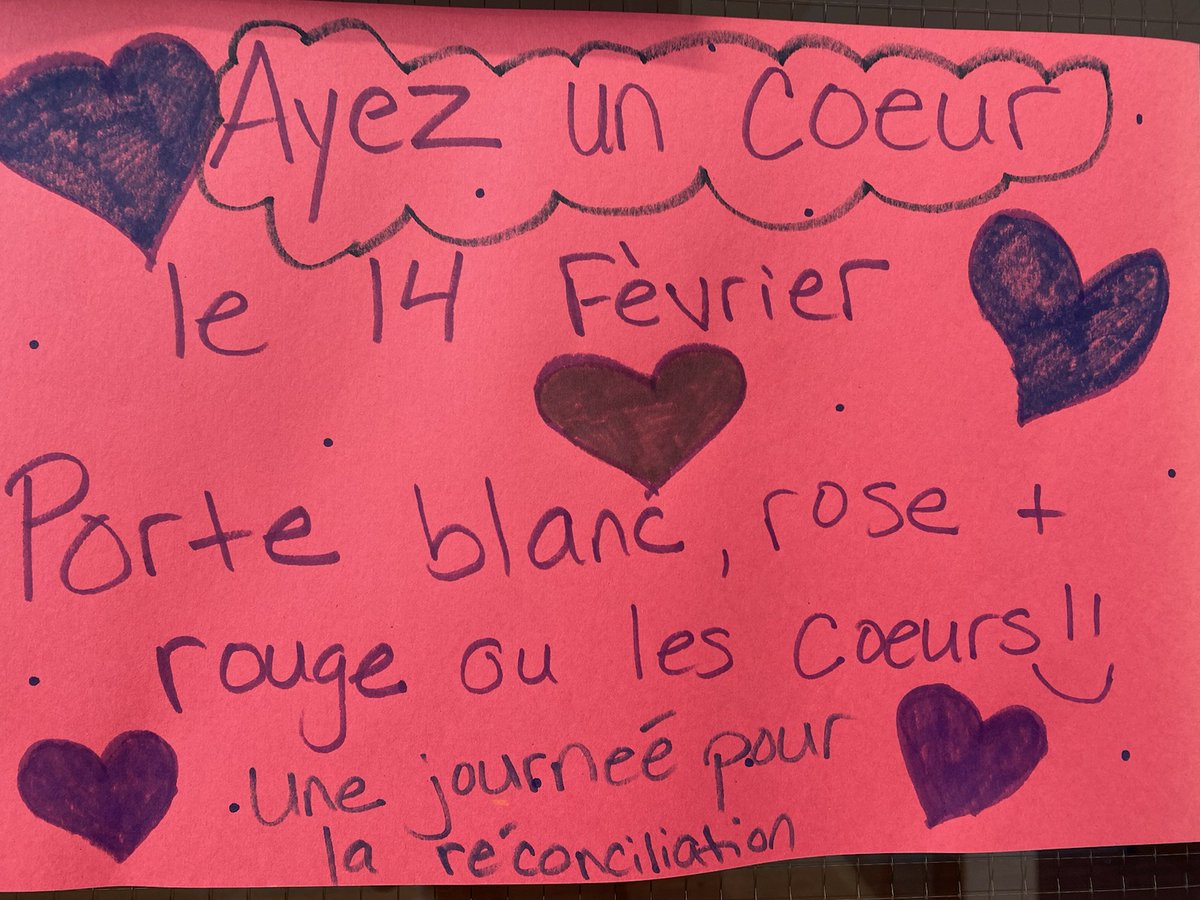 Ayez un Coeur
le 14 Fèvrier
Porte blanc, rose +
rouge ou les coeurs!!
une journeé pour
la réconciliation